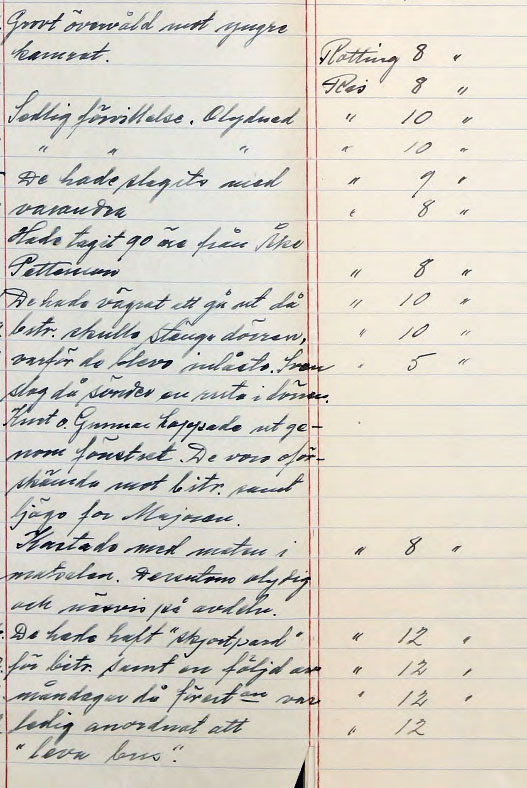 Grovt övervåld mot yngre
kamrat. Rotting 8 "
Ris 8 "
Sedlig förvillelse. Olydnad " 10 "
" " " " 10 "
De hade slagits med " 9 "
varandra " 8 "
Hade tagit 90 öre från Åke
Petterson " 8 "
De hade vägrat att gå ut då " 10 "
bitr. skulle stänga dörren, " 10 "
varför de blevo inlåsta. Sven " 5 "
slog då sönder en ruta i dörren.
Knut o. Gunnar hoppade ut ge-
nom fönstret. De voro oför-
skämda mot bitr. samt
ljögo for Majoren.
Kastade med maten i " 8 "
matsalen. Dessutom olydig
och näsvis på avdeln.
De hade haft "skjortparad" " 12 "
för bitr. samt en följd av " 12 "
måndagar då förest an var " 12 "
ledig anordnat att " 12
"leva bus".